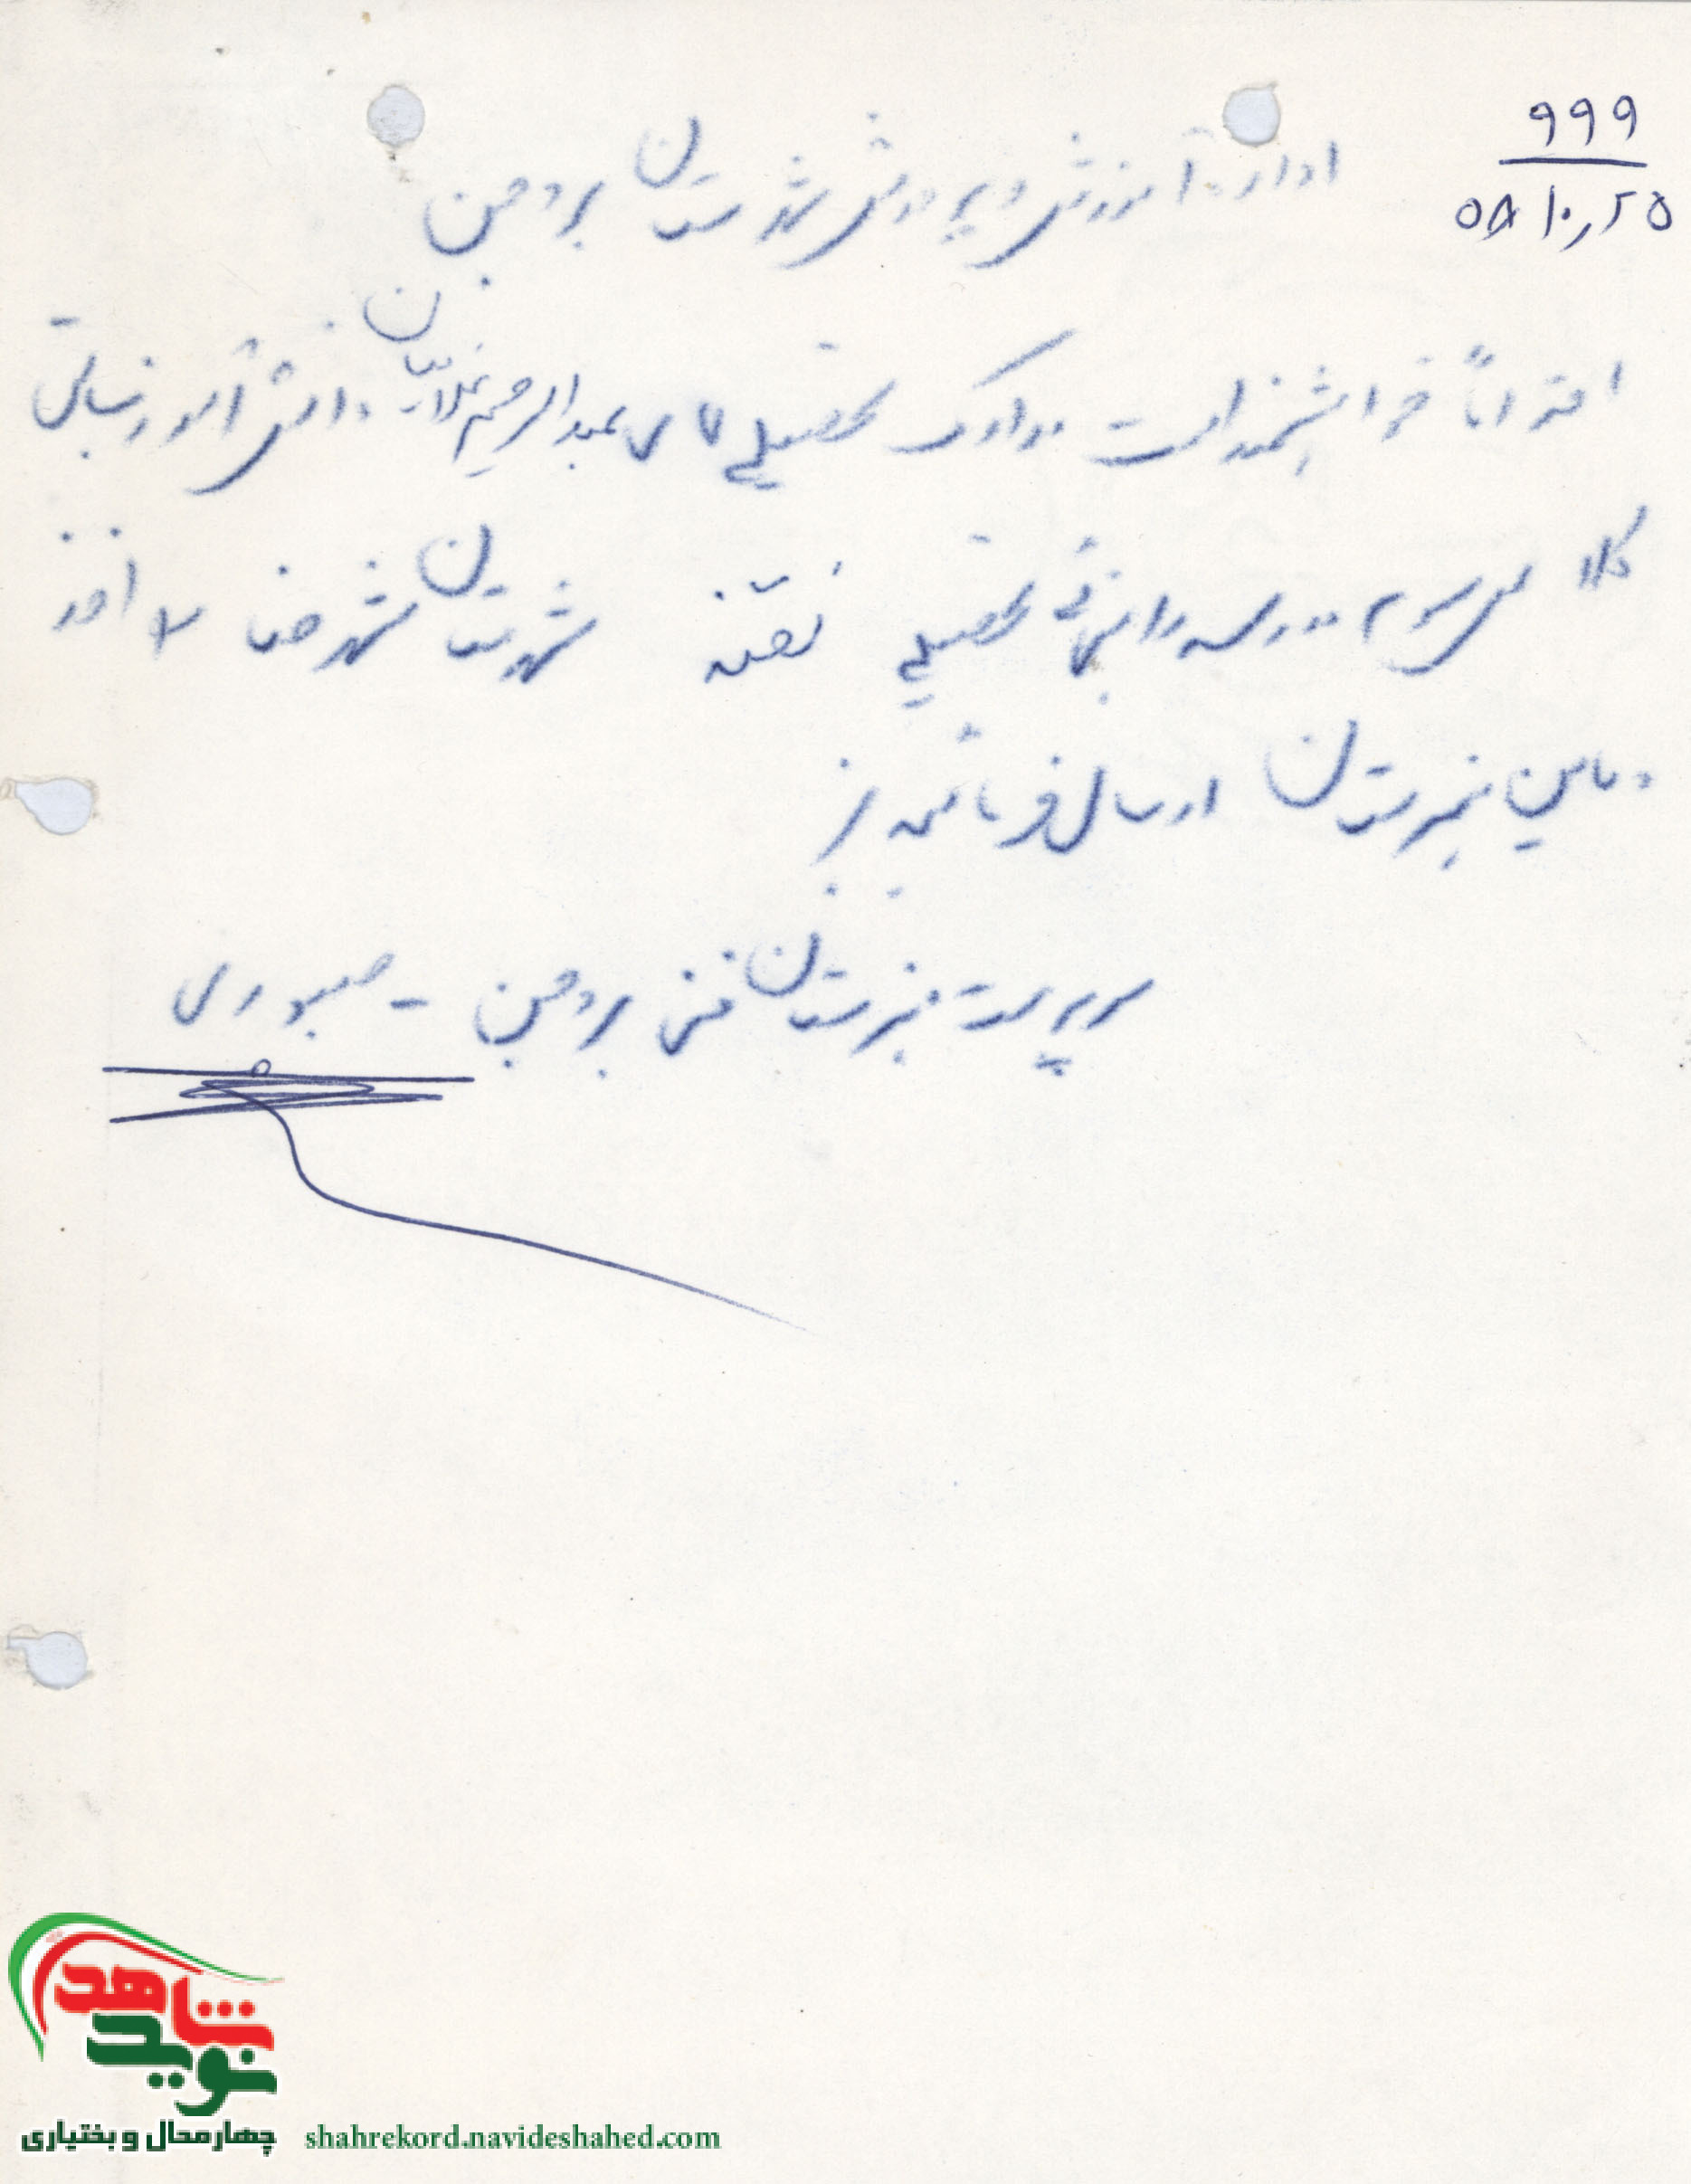 ۹۹۹
۵۸/۱۰/۲۵
اداره آموزش و پرورش شهرستان بروجن
احتراماً خواهشمند است مدارک تحصیلی آقای عبدالرحیم غلامیان دانش آموز سابق
کلاس سوم مدرسه راهنمائی تحصیلی شهرستان شهرضا را اخذ
و باین هنرستان ارسال فرمائید
سرپرست هنرستان فنی بروجن - صبوری
شاهد
نوید
چهارمحال و بختیاری
shahrekord.navideshahed.com